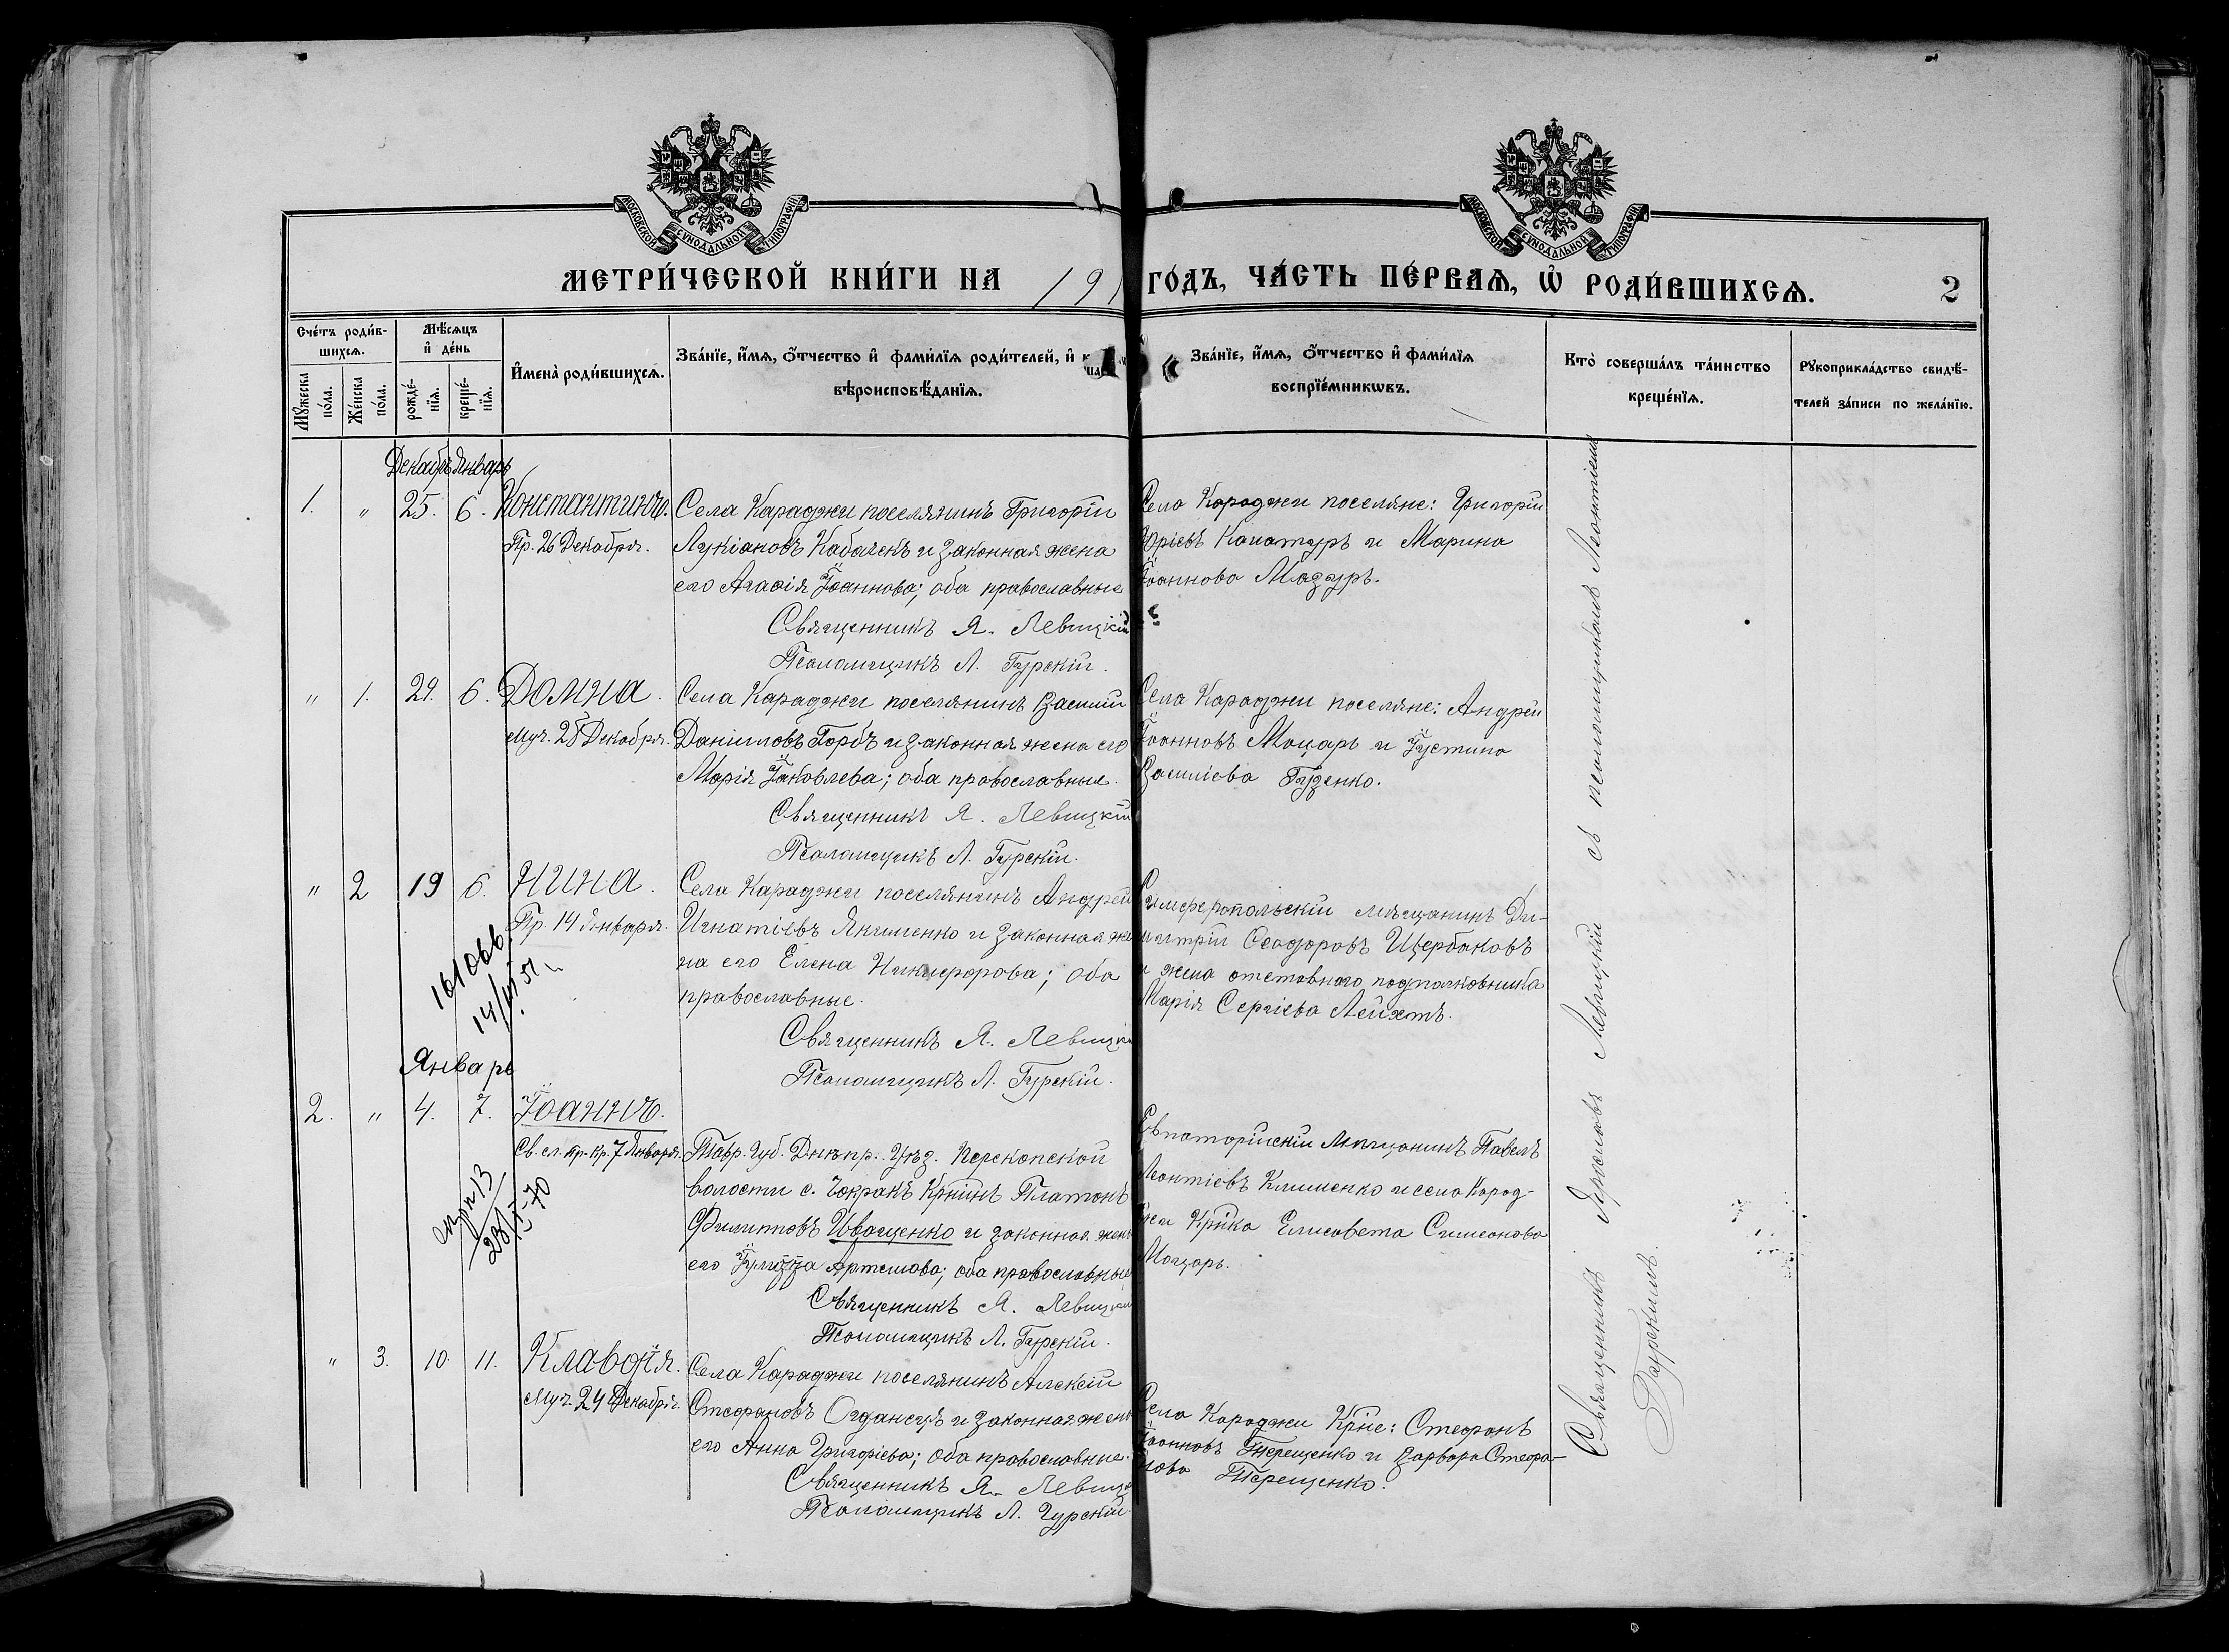 МОСКОВСКОЙ СѴНОДАЛЬНОЙ ТИПОГРАФІИ
МОСКОВСКОЙ СѴНОДАЛЬНОЙ ТИПОГРАФІИ
МЕТРИ́ЧЕСКОЙ КНИ́ГИ НА 191
ГО́ДЪ, ЧА́СТЬ ПЕ́РВАѦ, Ѡ҆ РОДИ́ВШИХСѦ.
2
Сче́тъ роди́в-
шихсѧ.
Мꙋ́жеска по́ла.
Же́нска по́ла.
Мѣ́сѧцъ
и҆ де́нь
рожде́-
нїѧ.
креще́-
нїѧ.
И҆мена̀ роди́вшихсѧ.
Зва́нїе, и҆́мѧ, ѻ҆́тчество и҆ фами́лїѧ роди́телей, и҆
вѣроисповѣ́данїѧ.
Зва́нїе, и҆́мѧ, ѻ҆́тчество и҆ фами́лїѧ
воспрїе́мникѡвъ.
Кто̀ соверша́лъ та́инство
креще́нїѧ.
Рꙋкоприкла́дство свидѣ́-
телей за́писи по жела́нїю.
Декабрь Январь
1. " 25. 6. Константинъ.
Пр. 26 Декабря.
Села Караджи поселянинъ Григорій
Лукіановъ Кабачекъ и законная жена
его Агафія Іоаннова; оба православные
Священникъ Я. Левицкій
Псаломщикъ Л. Гурскій.
Села Караджи поселяне: Григорій
Юріевъ Канатуръ и Марина
Іоаннова Мадзуръ.
" 1. 29. 6. Домна.
Муч. 28 Декабря.
Села Караджи поселянинъ Василій
Даніиловъ Горбъ и законная жена его
Марія Іаковлева; оба православные.
Священникъ Я. Левицкій
Псаломщикъ Л. Гурскій.
Села Караджи поселяне: Андрей
Іоанновъ Моцарь и Іустина
Василіева Гуденко.
" 2 19 6. Нина.
Пр. 14 Января.
Села Караджи поселянинъ Андрей
Игнатіевъ Якименко и законная же
на его Елена Никифорова; оба
православные.
Священникъ Я. Левицкі
Псаломщикъ Л. Гурскій.
Симферопольскій мѣщанинъ Ди-
митрій Ѳеодоровъ Щербаковъ
и жена отставного подполковника
Марія Сергіева Лейхтъ.
Январь
2. " 4. 7. Іоаннъ.
Св. сл. пр. кр. 7 Января.
Тавр. Губ. Днѣпр. Уѣзд. Перекопской
волости с. Чокракъ Крнинъ Платонъ
Филипповъ Иващенко и законная жена
его Іулитта Артемова; оба православные
Священникъ Я. Левицкій
Псаломщикъ Л. Гурскій.
Евпаторійскій мѣщанинъ Павелъ
Леонтіевъ Клименко и села Карад-
жи Крнка Елисавета Симеонова
Моцарь.
" 3. 10. 11. Клавдія.
Муч. 24 Декабря.
Села Караджи поселянинъ Алексій
Стефановъ и законная жена
его Анна Григоріева; оба православные.
Священникъ Я. Левицк
Псаломщикъ Л. Гурскій.
Села Караджи Крне: Стефанъ
Іоанновъ Терещенко и Варвара Стефа-
нова Терещенко.
Священникъ Ярославъ Левицкій съ псаломщикомъ Леонтіемъ
Гурскимъ.